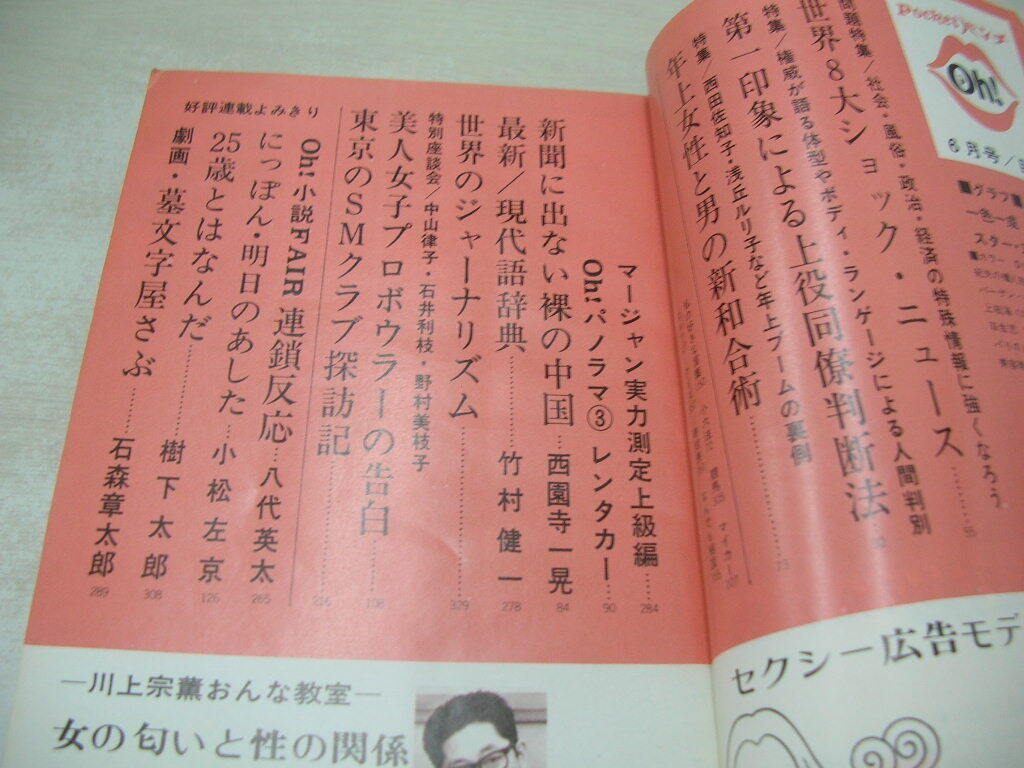 Pocketパンチ
Oh!
6月号
■グラフ■
問題特集/社会・風俗・政治・経済の特殊情報に強くなろう
世界8大ショック・ニュース 55
特集/権威が語る体型やボディ・ランゲージによる人間判別
第一印象による上役同僚判断法
特集/西田佐知子・浅丘ルリ子など年上ブームの裏側
年上女性と男の新和合術 73
マージャン実力測定上級編 284
Oh!パノラマ③ レンタカー 90
新聞に出ない裸の中国 西園寺一晃 84
最新/現代語辞典 竹村健一 278
世界のジャーナリズム 329
特別座談会/中山律子・石井利枝・野村美枝子
美人女子プロボウラーの告白 108
東京のSMクラブ探訪記 216
好評連載よみきり
Oh!小説FAIR 連鎖反応 八代英太 265
にっぽん・明日のあした 小松左京 126
25歳とはなんだ 樹下太郎 308
劇画・墓文字屋さぶ 石森章太郎 289
セクシー広告モデ
―川上宗薫おんな教室―
女の匂いと性の関係